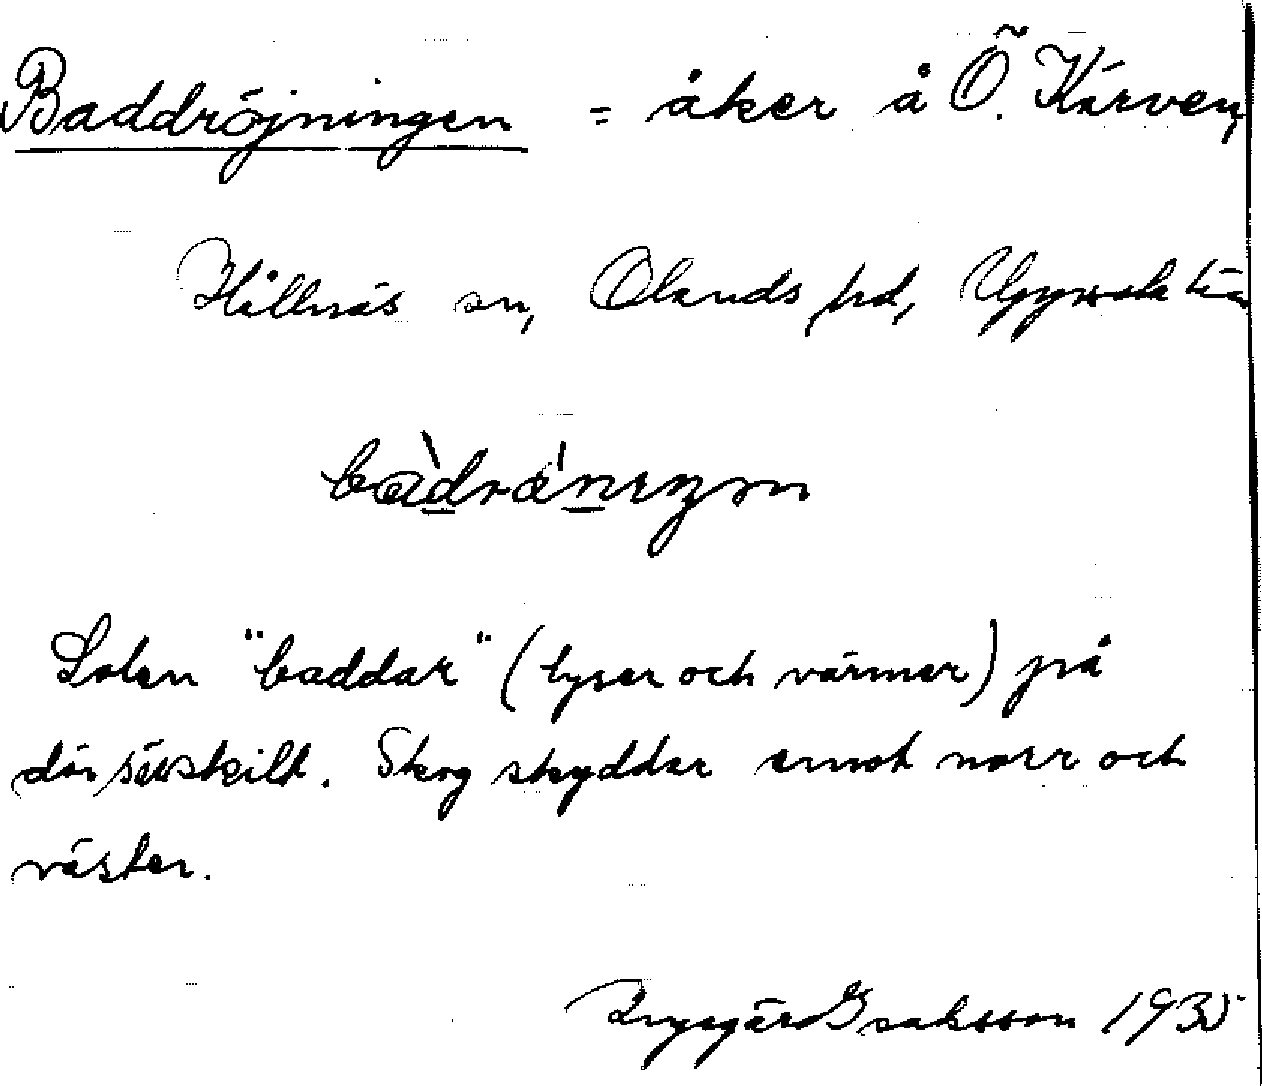 Baddröjningen = åker å Ö. Kärven,
Hållnäs sn, Olands hd, Uppsala län
Solen "baddar" (lyser och värmer) på
där särskilt. Skog skyddar emot norr och
väster.
Isaksson 1935